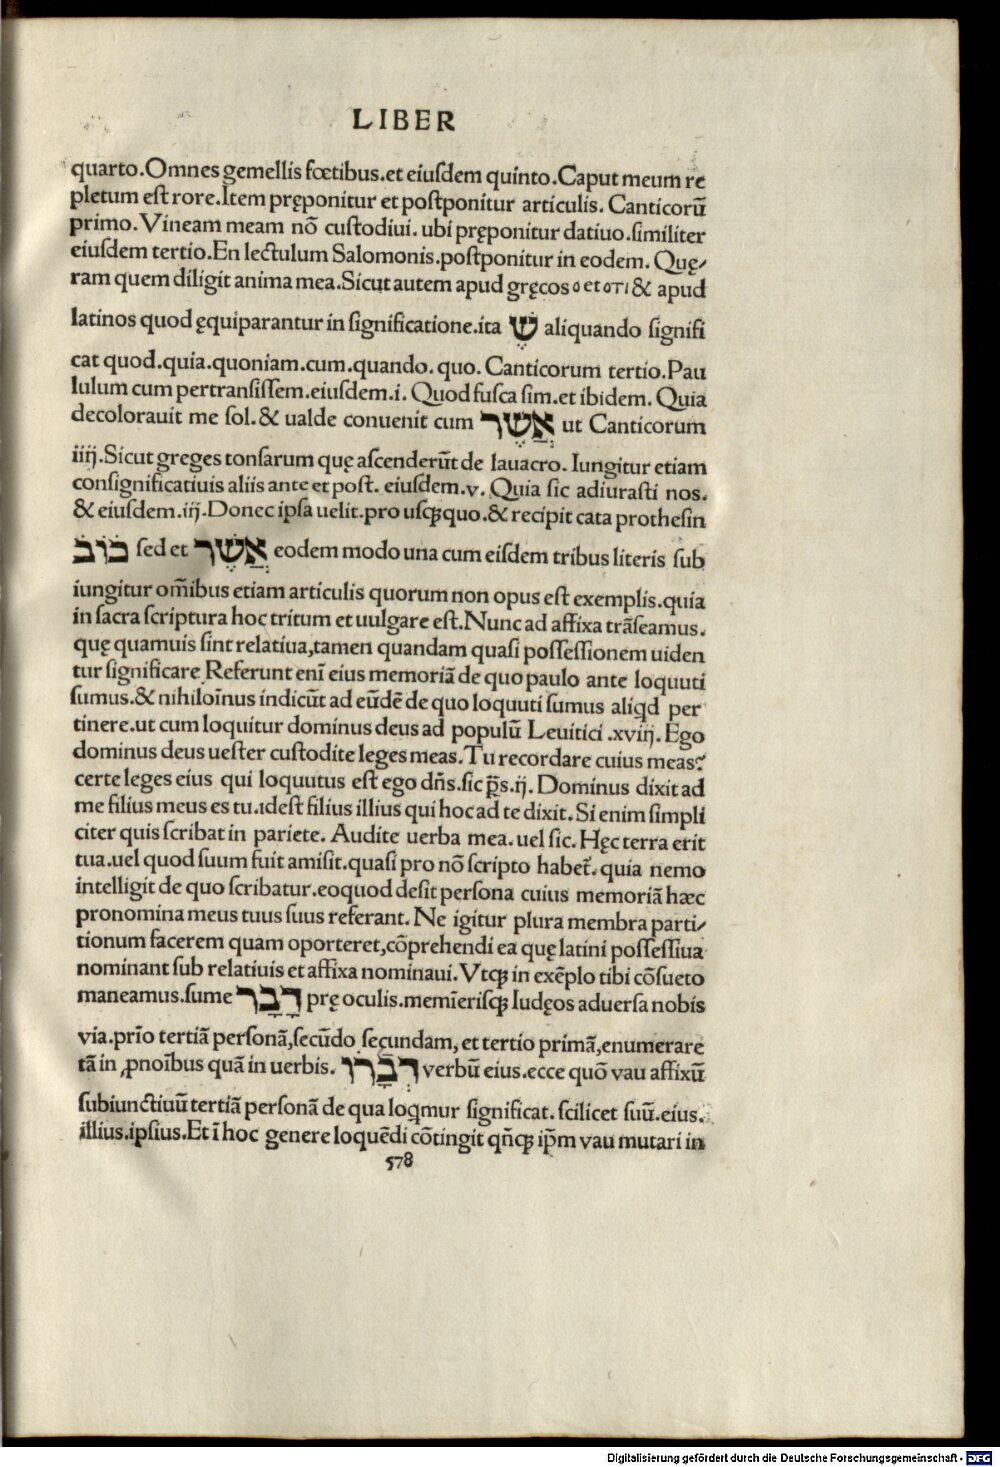 LIBER
quarto.Omnes gemellis fœtibus.et eiuſdem quinto.Caput meum re
pletum eſt rore.Item pręponitur et poſtponitur articulis. Canticorū
primo. Vineam meam nō cuſtodiui. ubi pręponitur datiuo.ſimiliter
eiuſdem tertio.En lectulum Salomonis.poſtponitur in eodem. Quę/
ram quem diligit anima mea.Sicut autem apud gręcos ο et οτι & apud
latinos quod ęquiparantur in ſignificatione.ita שֶׁ aliquando ſignifi
cat quod.quia.quoniam.cum.quando. quo. Canticorum tertio.Pau
lulum cum pertranſiſſem.eiuſdem.i. Quod fuſca ſim.et ibidem. Quia
decolorauit me ſol.& ualde conuenit cum אֲשֶׁר ut Canticorum
iiij.Sicut greges tonſarum quę aſcenderūt de lauacro. Iungitur etiam
conſignificatiuis aliis ante et poſt. eiuſdem.v. Quia ſic adiuraſti nos.
& eiuſdem.iij.Donec ipſa uelit.pro uſqꝫquo.& recipit cata protheſin
כוב ſed et אֲשֶׁר eodem modo una cum eiſdem tribus literis ſub
iungitur om̄ibus etiam articulis quorum non opus eſt exemplis.quia
in ſacra ſcriptura hoc tritum et uulgare eſt.Nunc ad affixa trāſeamus.
quę quamuis ſint relatiua,tamen quandam quaſi poſſeſſionem uiden
tur ſignificare.Referunt enī eius memoriā de quo paulo ante loquuti
ſumus.& nihiloīnus indicūt ad eūdē de quo loquuti ſumus aliqd per
tinere.ut cum loquitur dominus deus ad populū Leuitici .xviij. Ego
dominus deus ueſter cuſtodite leges meas.Tu recordare cuius meas?
certe leges eius qui loquutus eſt ego dn̄s.ſic p̄s.ij. Dominus dixit ad
me filius meus es tu.ideſt filius illius qui hoc ad te dixit. Si enim ſimpli
citer quis ſcribat in pariete. Audite uerba mea. uel ſic. Hęc terra erit
tua.uel quod ſuum fuit amiſit.quaſi pro nō ſcripto habet̄. quia nemo
intelligit de quo ſcribatur.eoquod deſit perſona cuius memoriā hæc
pronomina meus tuus ſuus referant. Ne igitur plura membra parti/
tionum facerem quam oporteret,cōprehendi ea quę latini poſſeſſiua
nominant ſub relatiuis et affixa nominaui. Vtqꝫ in exēplo tibi cōſueto
maneamus.ſume דָבָר prę oculis.memīeriſqꝫ Iudęos aduerſa nobis
via.prīo tertiā perſonā,ſecūdo ſecundam, et tertio primā,enumerare
tā in ꝓnoībus quā in uerbis. דְבָרוֹ verbū eius.ecce quō vau affixū
ſubiunctiuū tertiā perſonā de qua loqmur ſignificat. ſcilicet ſuū.eius.
illius.ipſius.Et ī hoc genere loquēdi cōtingit qn̄qꝫ ip̄m vau mutari in
578
Digitalisierung gefördert durch die Deutsche Forschungsgemeinschaft - DFG